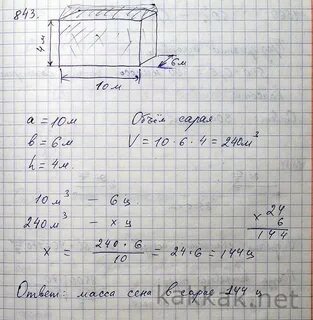 843.
4м
6м
10м
a = 10м
Объём сарая
в = 6м
V = 10 · 6 · 4 = 240м³
h = 4м.
10 м³ – 6 ц
240м³ – х ц
х = 240 · 6 / 10 = 24 · 6 = 144ц
24
× 6
144
Ответ: масса сена в сарае 144 ц
kakkak.net